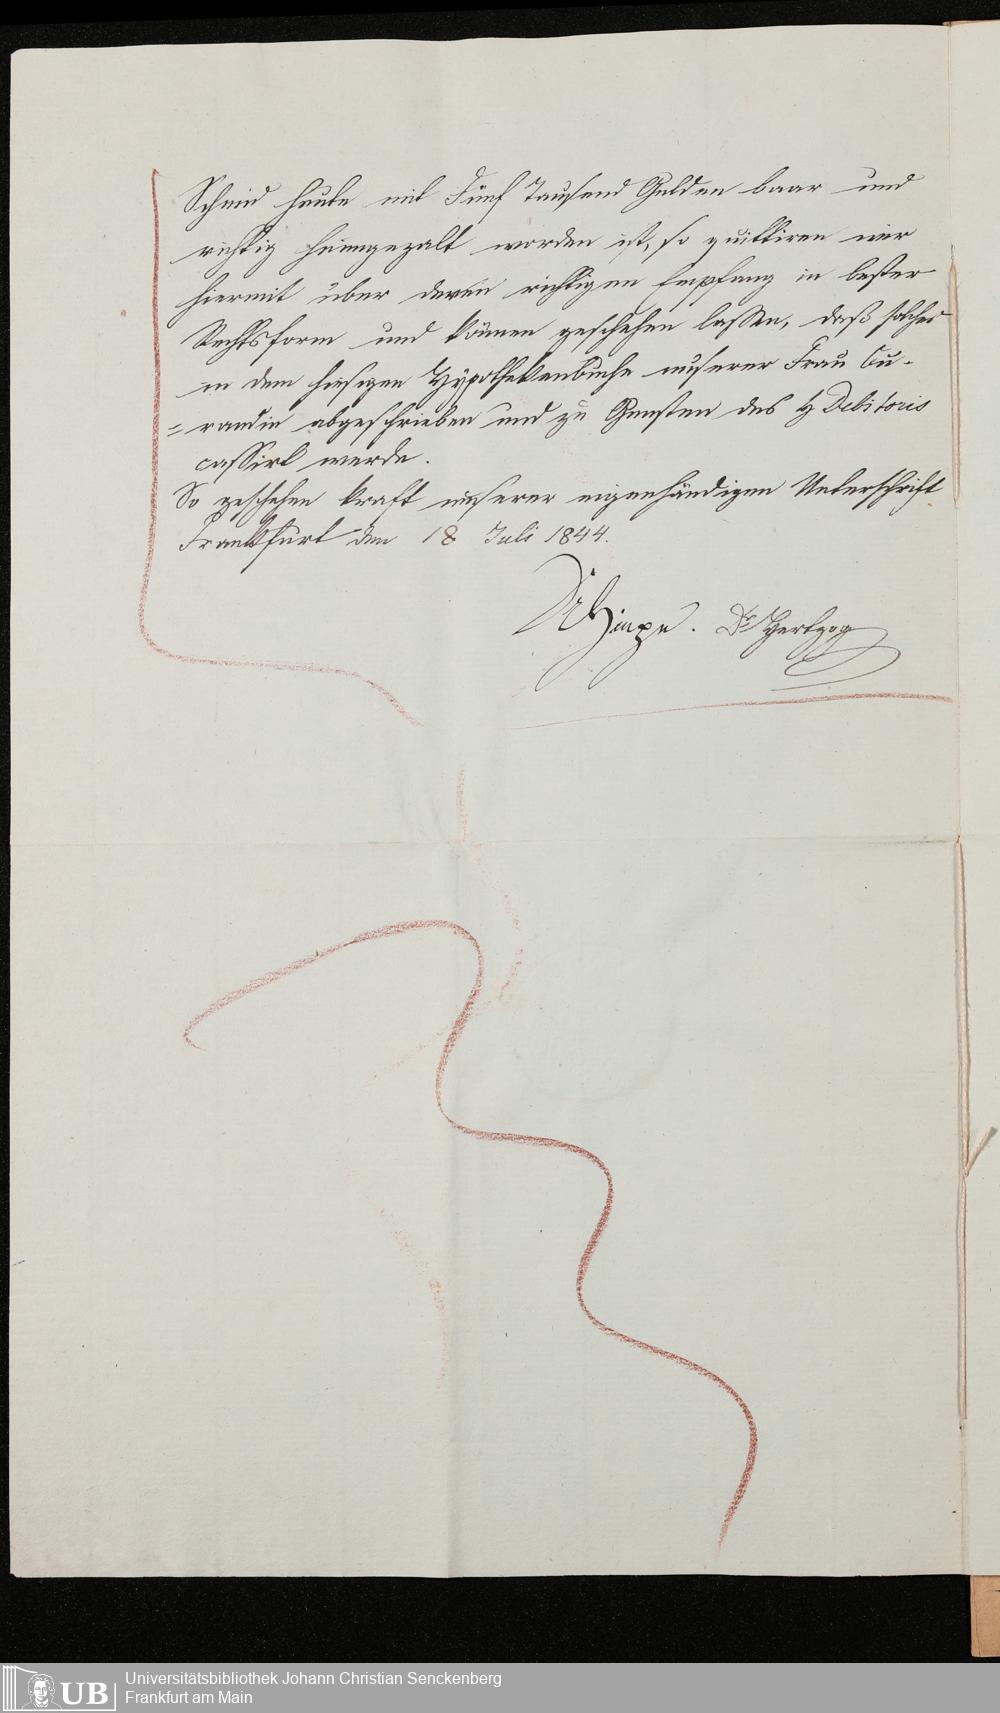 Schmid heute mit Fünf Tausend Gulden baar und
richtig heimgezalt worden ist, so quittiren wir
hiermit über deren richtigen Empfang in bester
Rechtsform und können geschehen lassen, daß solches
in dem hiesigen Hypothekenbuche unserer Frau Cu-
=randin abgeschrieben und zu Gunsten des H Debitoris
cassirt werde.
So geschehen kraft unserer eigenhändigen Unterschrift
Frankfurt den 18 Juli 1844.
Dr Hertzog
UB
Universitätsbibliothek Johann Christian Senckenberg
Frankfurt am Main